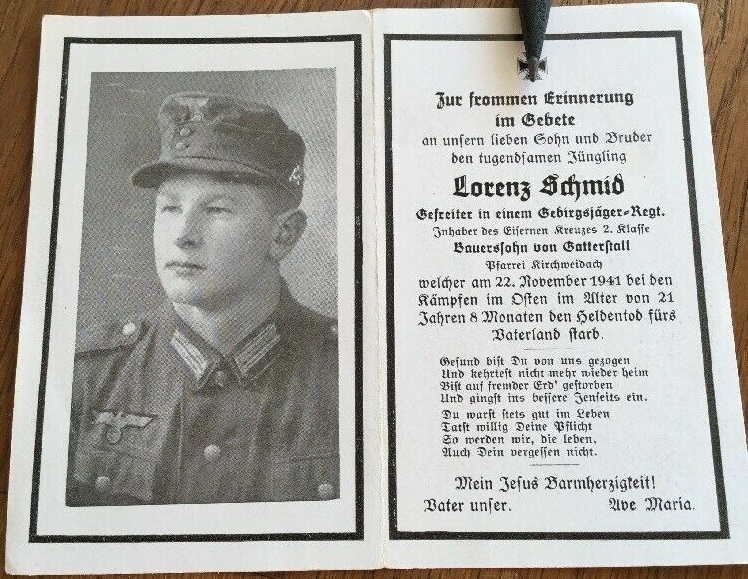 Zur frommen Erinnerung
im Gebete
an unsern lieben Sohn und Bruder
den tugendsamen Jüngling
Lorenz Schmid
Gefreiter in einem Gebirgsjäger-Regt.
Inhaber des Eisernen Kreuzes 2. Klasse
Bauerssohn von Gatterstall
Pfarrei Kirchweidach
welcher am 22. November 1941 bei den
Kämpfen im Osten im Alter von 21
Jahren 8 Monaten den Heldentod fürs
Vaterland starb.
Gesund bist Du von uns gezogen
Und kehrtest nicht mehr wieder heim
Bist auf fremder Erd' gestorben
Und gingst ins bessere Jenseits ein.
Du warst stets gut im Leben
Tatst willig Deine Pflicht
So werden wir, die leben,
Auch Dein vergessen nicht.
Mein Jesus Barmherzigkeit!
Vater unser. Ave Maria.